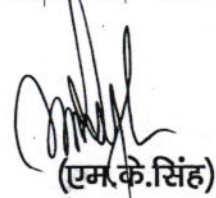 (एम.के.सिंह)